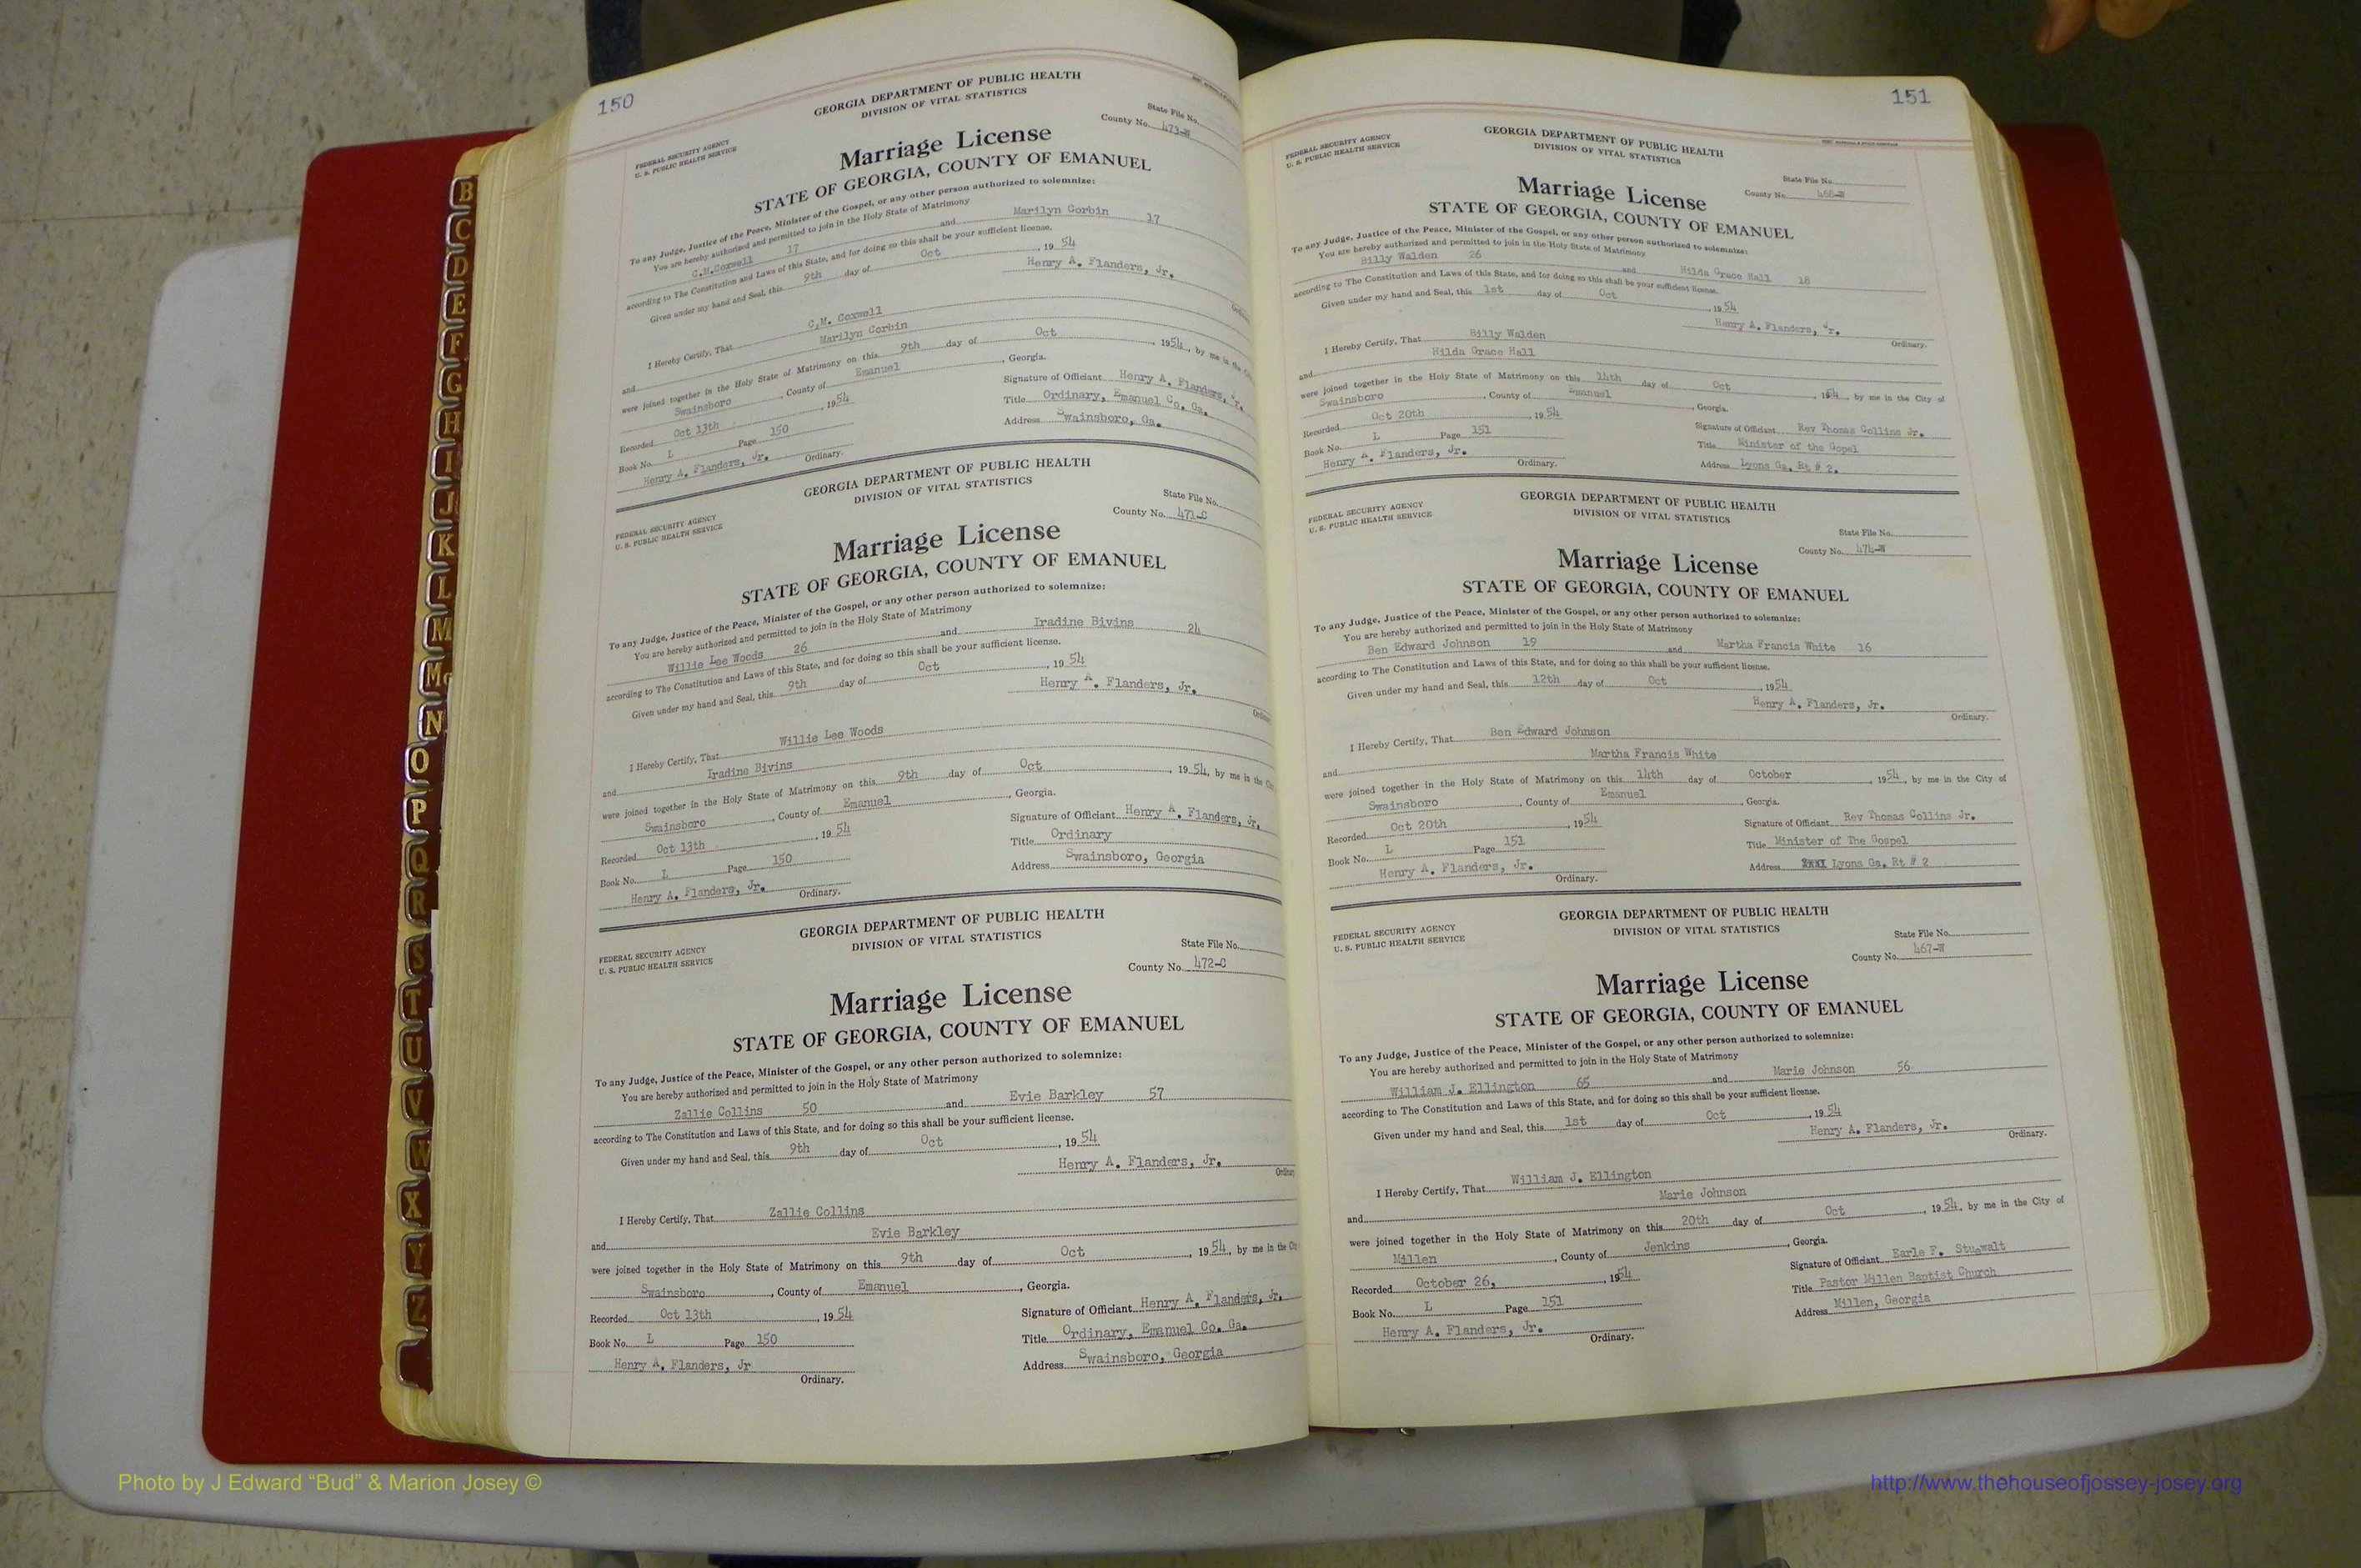 150
GEORGIA DEPARTMENT OF PUBLIC HEALTH
DIVISION OF VITAL STATISTICS
FEDERAL SECURITY AGENCY
U. S. PUBLIC HEALTH SERVICE
State File No.
County No. 473-W
Marriage License
STATE OF GEORGIA, COUNTY OF EMANUEL
To any Judge, Justice of the Peace, Minister of the Gospel, or any other person authorized to solemnize:
You are hereby authorized and permitted to join in the Holy State of Matrimony
C.M.Coxwell 17 and Marilyn Corbin 17
according to The Constitution and Laws of this State, and for doing so this shall be your sufficient license.
Given under my hand and Seal, this 9th day of Oct, 1954
Henry A. Flanders, Jr.
I Hereby Certify, That C.M. Coxwell
and Marilyn Corbin
were joined together in the Holy State of Matrimony on this 9th day of Oct, 1954, by me in the
Swainsboro, County of Emanuel, Georgia.
Recorded Oct 13th, 1954
Signature of Officiant Henry A. Flanders, Jr.
Book No. L Page 150
Title Ordinary, Emanuel Co. Ga.
Henry A. Flanders, Jr. Ordinary.
Address Swainsboro, Ga.
GEORGIA DEPARTMENT OF PUBLIC HEALTH
DIVISION OF VITAL STATISTICS
FEDERAL SECURITY AGENCY
U. S. PUBLIC HEALTH SERVICE
State File No.
County No. 471-C
Marriage License
STATE OF GEORGIA, COUNTY OF EMANUEL
To any Judge, Justice of the Peace, Minister of the Gospel, or any other person authorized to solemnize:
You are hereby authorized and permitted to join in the Holy State of Matrimony
Willie Lee Woods 26 and Iradine Bivins 24
according to The Constitution and Laws of this State, and for doing so this shall be your sufficient license.
Given under my hand and Seal, this 9th day of Oct, 1954
Henry A. Flanders, Jr.
I Hereby Certify, That Willie Lee Woods
and Iradine Bivins
were joined together in the Holy State of Matrimony on this 9th day of Oct, 1954, by me in the
Swainsboro, County of Emanuel, Georgia.
Recorded Oct 13th, 1954
Signature of Officiant Henry A. Flanders, Jr.
Book No. L Page 150
Title Ordinary
Henry A. Flanders, Jr. Ordinary.
Address Swainsboro, Georgia
GEORGIA DEPARTMENT OF PUBLIC HEALTH
DIVISION OF VITAL STATISTICS
FEDERAL SECURITY AGENCY
U. S. PUBLIC HEALTH SERVICE
State File No.
County No. 472-C
Marriage License
STATE OF GEORGIA, COUNTY OF EMANUEL
To any Judge, Justice of the Peace, Minister of the Gospel, or any other person authorized to solemnize:
You are hereby authorized and permitted to join in the Holy State of Matrimony
Zallie Collins 50 and Evie Barkley 57
according to The Constitution and Laws of this State, and for doing so this shall be your sufficient license.
Given under my hand and Seal, this 9th day of Oct, 1954
Henry A. Flanders, Jr.
I Hereby Certify, That Zallie Collins
and Evie Barkley
were joined together in the Holy State of Matrimony on this 9th day of Oct, 1954, by me in the
Swainsboro, County of Emanuel, Georgia.
Recorded Oct 13th, 1954
Signature of Officiant Henry A. Flanders, Jr.
Book No. L Page 150
Title Ordinary, Emanuel Co. Ga.
Henry A. Flanders, Jr
Address Swainsboro, Georgia
Ordinary.
151
GEORGIA DEPARTMENT OF PUBLIC HEALTH
DIVISION OF VITAL STATISTICS
FEDERAL SECURITY AGENCY
U. S. PUBLIC HEALTH SERVICE
State File No.
County No. 468-W
Marriage License
STATE OF GEORGIA, COUNTY OF EMANUEL
To any Judge, Justice of the Peace, Minister of the Gospel, or any other person authorized to solemnize:
You are hereby authorized and permitted to join in the Holy State of Matrimony
Billy Walden 26 and Hilda Grace Hall 18
according to The Constitution and Laws of this State, and for doing so this shall be your sufficient license.
Given under my hand and Seal, this 1st day of Oct, 1954
Henry A. Flanders, Jr.
Ordinary.
I Hereby Certify, That Billy Walden
and Hilda Grace Hall
were joined together in the Holy State of Matrimony on this 14th day of Oct, 1954, by me in the City of
Swainsboro, County of Emanuel, Georgia.
Recorded Oct 20th, 1954
Signature of Officiant Rev Thomas Collins Jr.
Book No. L Page 151
Title Minister of the Gopel
Henry A. Flanders, Jr. Ordinary.
Address Lyons Ga. Rt # 2.
GEORGIA DEPARTMENT OF PUBLIC HEALTH
DIVISION OF VITAL STATISTICS
FEDERAL SECURITY AGENCY
U. S. PUBLIC HEALTH SERVICE
State File No.
County No. 474-W
Marriage License
STATE OF GEORGIA, COUNTY OF EMANUEL
To any Judge, Justice of the Peace, Minister of the Gospel, or any other person authorized to solemnize:
You are hereby authorized and permitted to join in the Holy State of Matrimony
Ben Edward Johnson 19 and Martha Francis White 16
according to The Constitution and Laws of this State, and for doing so this shall be your sufficient license.
Given under my hand and Seal, this 12th day of Oct, 1954
Henry A. Flanders, Jr.
Ordinary.
I Hereby Certify, That Ben Edward Johnson
and Martha Francis White
were joined together in the Holy State of Matrimony on this 14th day of October, 1954, by me in the City of
Swainsboro, County of Emanuel, Georgia.
Recorded Oct 20th, 1954
Signature of Officiant Rev Thomas Collins Jr.
Book No. L Page 151
Title Minister of The Gospel
Henry A. Flanders, Jr. Ordinary.
Address Lyons Ga. Rt # 2
GEORGIA DEPARTMENT OF PUBLIC HEALTH
DIVISION OF VITAL STATISTICS
FEDERAL SECURITY AGENCY
U. S. PUBLIC HEALTH SERVICE
State File No.
County No. 467-W
Marriage License
STATE OF GEORGIA, COUNTY OF EMANUEL
To any Judge, Justice of the Peace, Minister of the Gospel, or any other person authorized to solemnize:
You are hereby authorized and permitted to join in the Holy State of Matrimony
William J. Ellington 65 and Marie Johnson 56
according to The Constitution and Laws of this State, and for doing so this shall be your sufficient license.
Given under my hand and Seal, this 1st day of Oct, 1954
Henry A. Flanders, Jr.
Ordinary.
I Hereby Certify, That William J. Ellington
and Marie Johnson
were joined together in the Holy State of Matrimony on this 20th day of Oct, 1954, by me in the City of
Millen, County of Jenkins, Georgia.
Recorded October 26, 1954
Signature of Officiant Earle F.
Book No. L Page 151
Title Pastor Millen Baptist Church
Henry A. Flanders, Jr. Ordinary.
Address Millen, Georgia
B
C
D
E
F
G
H
I
J
K
L
M
Mc
N
O
P
Q
R
S
T
U
V
W
X
Y
Z
Photo by J Edward “Bud” & Marion Josey ©
http://www.thehouseofjossey-josey.org